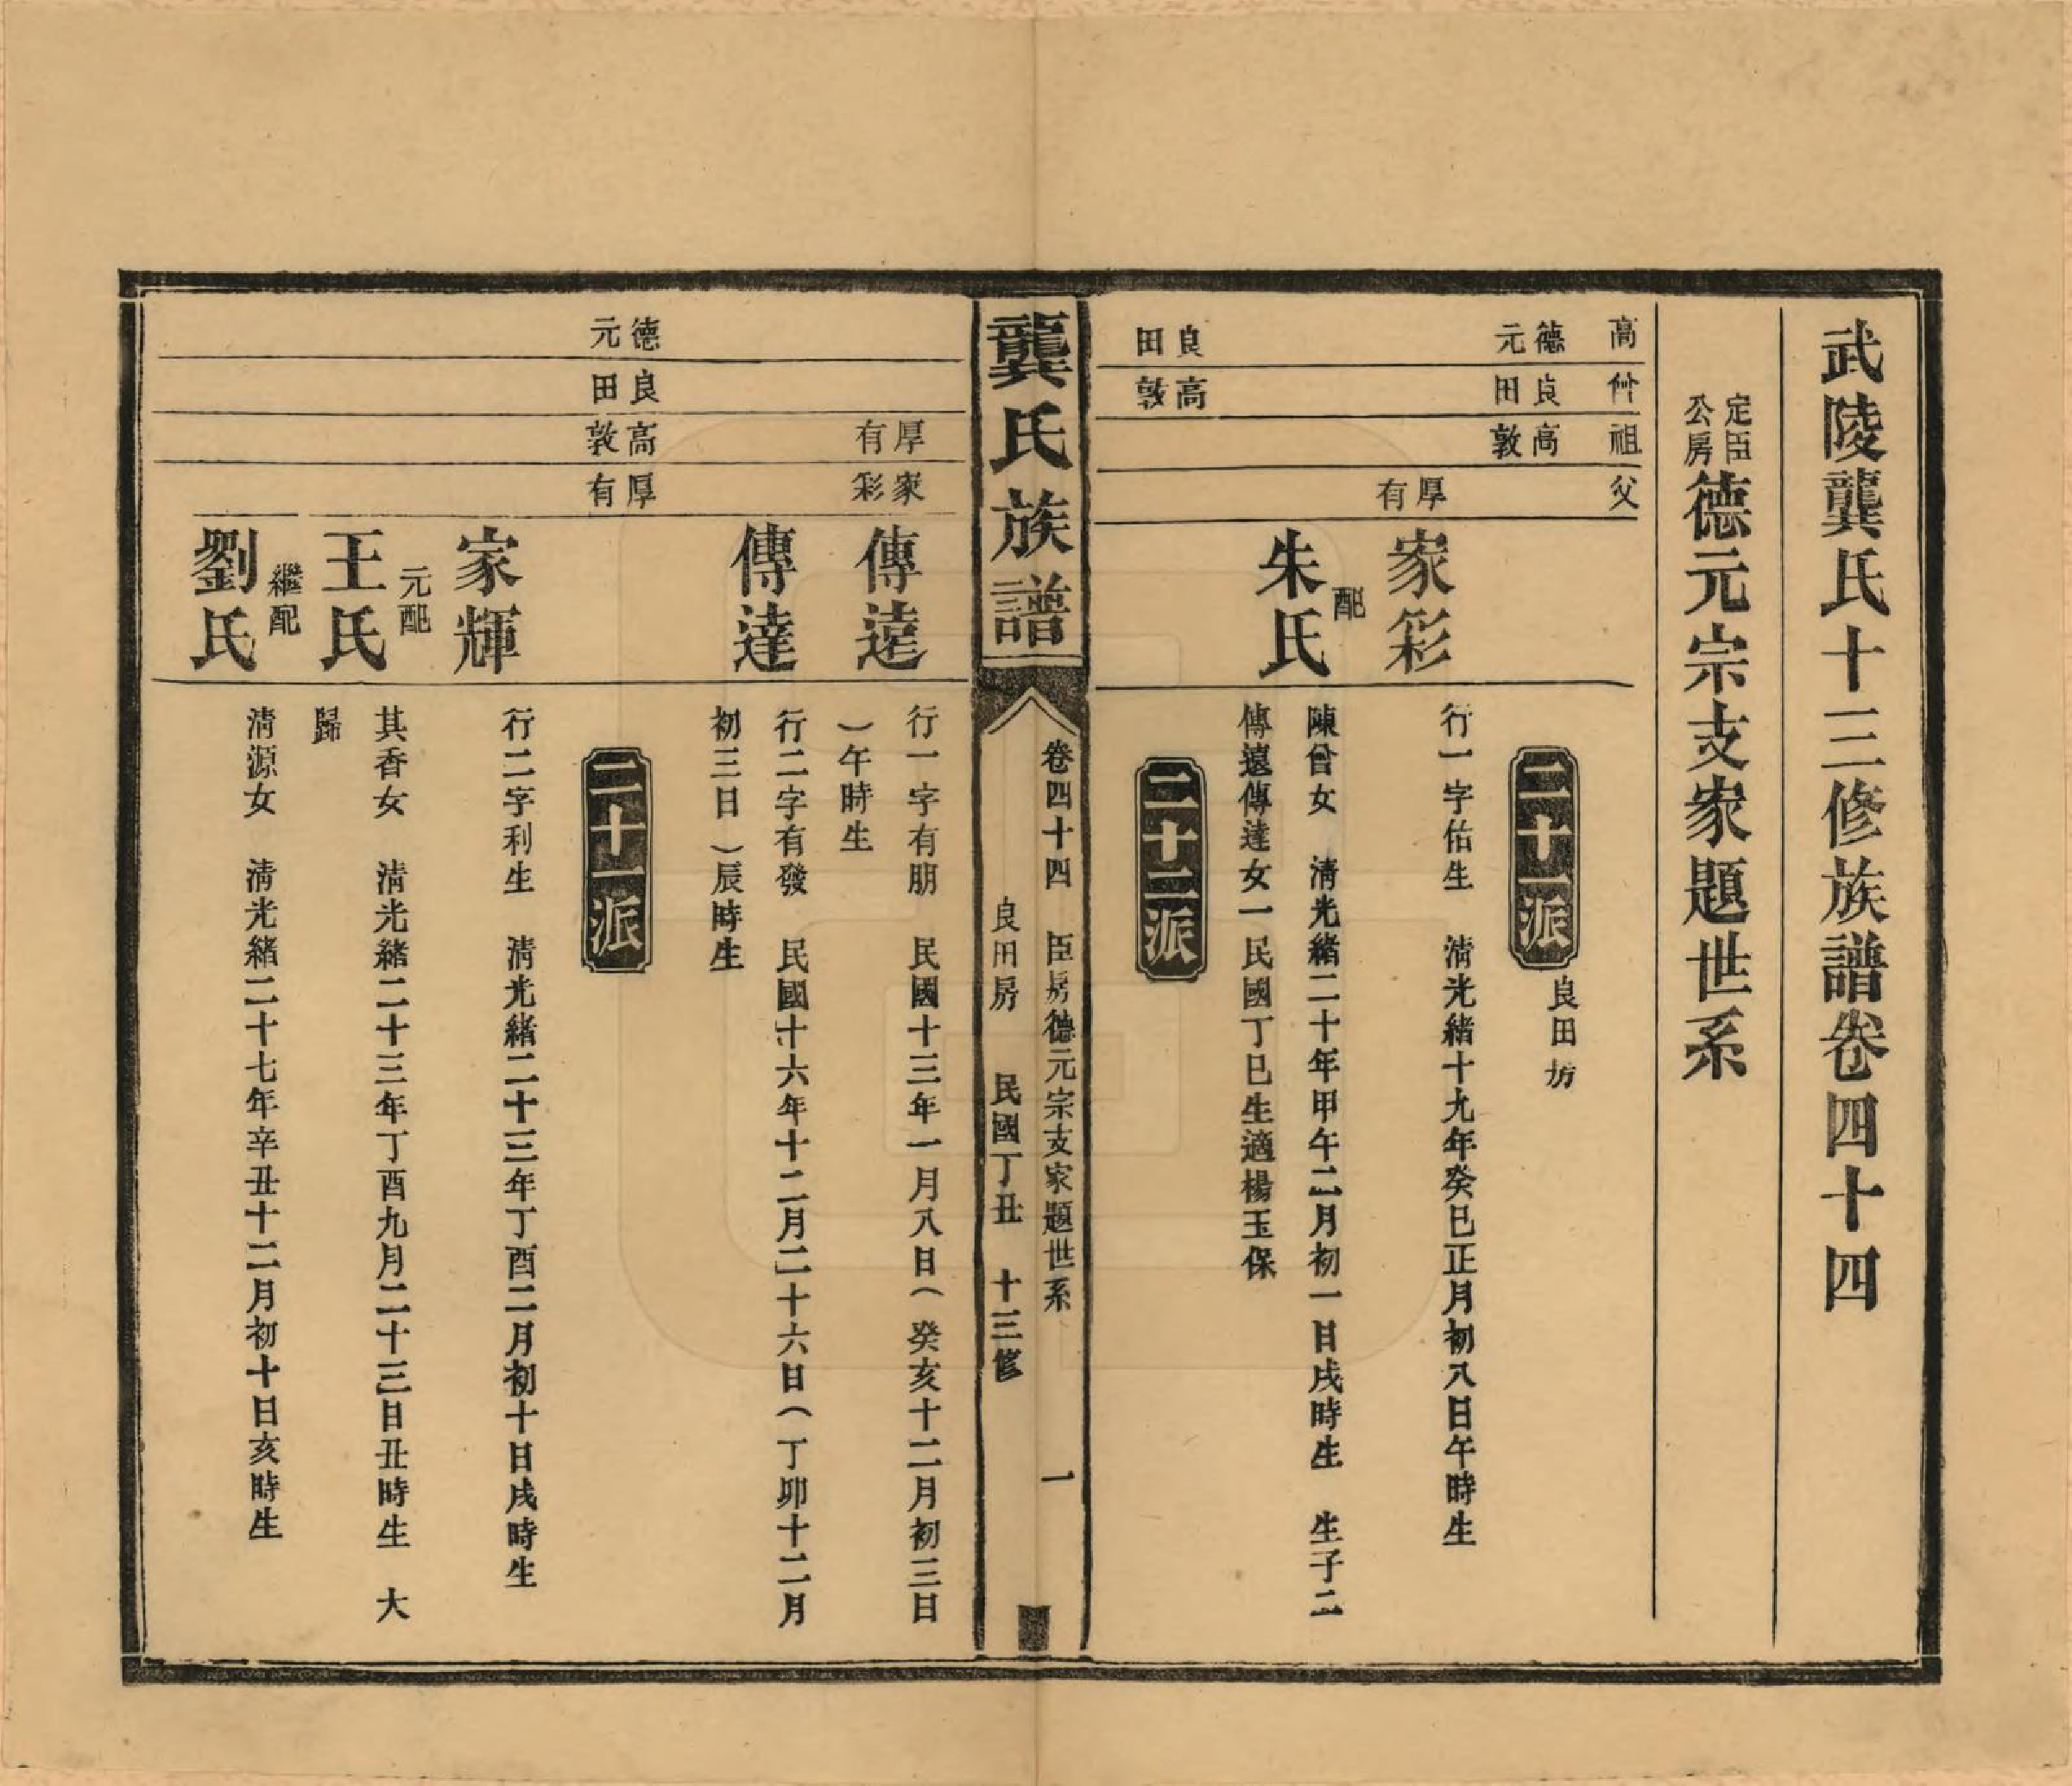 武陵龔氏十三修族譜卷四十四
定臣公房德元宗支家題世系
高 曾 祖 父
德元
良田
高敦
二十一派 良田房
厚有
家彩
行一字佑生 清光緒十九年癸巳正月初八日午時生
配
朱氏
陳曾女 清光緒二十年甲午二月初一日戌時生 生子二
傳遠傳達女一民國丁巳生適楊玉保
良田
高敦
二十二派
龔氏族譜
卷四十四 臣房德元宗支家題世系 一
良田房 民國丁丑 十三修
厚有
家彩
傳遠
行一字有朋 民國十三年一月八日(癸亥十二月初三日
)午時生
傳達
行二字有發 民國十六年十二月二十六日(丁卯十二月
初三日)辰時生
德元
良田
高敦
厚有
二十一派
家輝
行二字利生 清光緒二十三年丁酉二月初十日戌時生
元配
王氏
其香女 清光緒二十三年丁酉九月二十三日丑時生 大
歸
繼配
劉氏
清源女 清光緒二十七年辛丑十二月初十日亥時生